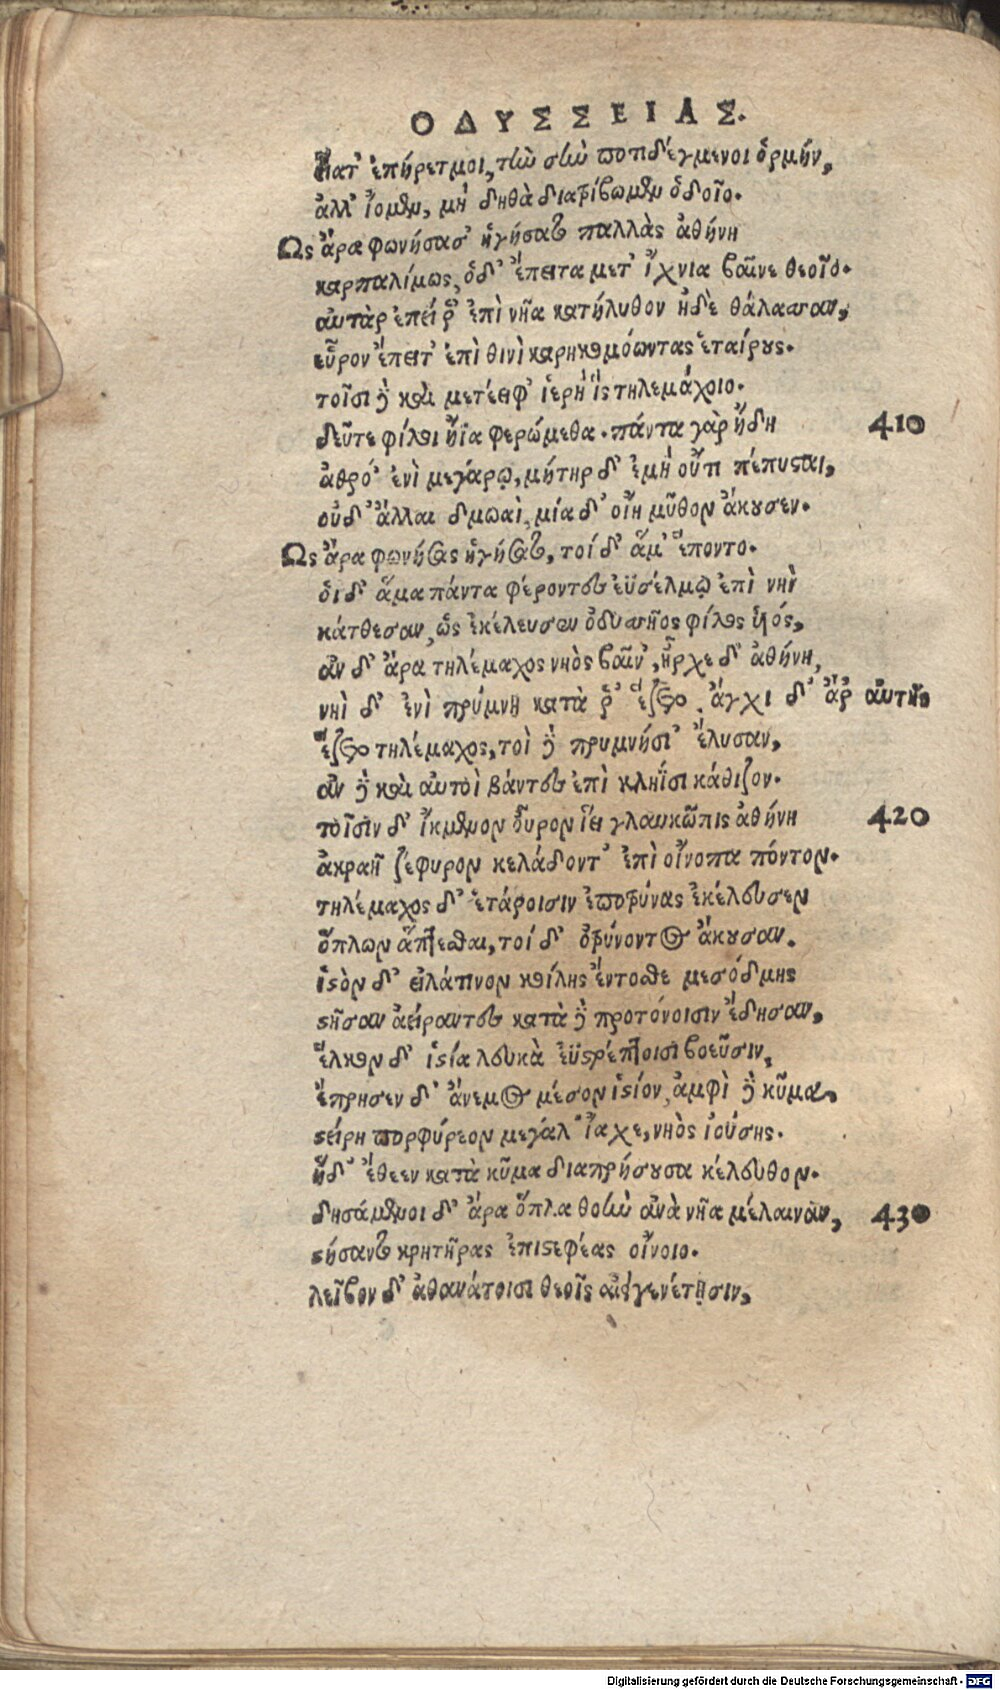 ΟΔΥΣΣΕΙΑΣ.
Εἵατ' ἐπήρετμοι, τὴν σὴν ποτιδέγμενοι ὁρμήν,
ἀλλ' ἴομεν, μὴ δηθὰ διατρίβωμεν ὁδοῖο.
Ὣς ἄρα φωνήσασ' ἡγήσατο παλλὰς ἀθήνη
καρπαλίμως, ὁ δ' ἔπειτα μετ' ἴχνια βαῖνε θεοῖο.
αὐτὰρ ἐπεί ῥ' ἐπὶ νῆα κατήλυθον ἠδὲ θάλασσαν,
εὗρον ἔπειτ' ἐπὶ θινὶ καρηκομόωντας ἑταίρους.
τοῖσι δὲ καὶ μετέειφ' ἱερὴ ἲς τηλεμάχοιο.
δεῦτε φίλοι ἤϊα φερώμεθα. πάντα γὰρ ἤδη 410
ἀθρό' ἐνὶ μεγάρῳ, μήτηρ δ' ἐμὴ οὔτι πέπυσται,
οὐδ' ἄλλαι δμωαὶ, μία δ' οἴη μῦθον ἄκουσεν.
Ὣς ἄρα φωνήσας ἡγήσατο, τοί δ' ἅμ' ἕποντο.
ὁι δ' ἅμα πάντα φέροντες ἐϋσέλμῳ ἐπὶ νηῒ
κάτθεσαν, ὡς ἐκέλευσεν ὀδυσσῆος φίλος υἱός,
ἂν δ' ἄρα τηλέμαχος νηὸς βαῖν', ἦρχε δ' ἀθήνη,
νηὶ δ' ἐνὶ πρύμνῃ κατὰ ῥ' ἕζετο. ἄγχι δ' ἄρ αὐτῆς
ἕζετο τηλέμαχος, τοὶ δὲ πρυμνήσι' ἔλυσαν,
ἂν δὲ καὶ αὐτοὶ βάντες ἐπὶ κληῗσι κάθιζον.
τοῖσιν δ' ἴκμενον οὖρον ἵει γλαυκῶπις ἀθήνη 420
ἀκραῆ ζέφυρον κελάδοντ' ἐπὶ οἴνοπα πόντον.
τηλέμαχος δ' ἑτάροισιν ἐποτρύνας ἐκέλευσεν
ὅπλων ἅπτεσθαι, τοί δ' ὀτρύνοντος ἄκουσαν.
ἱστὸν δ' εἰλάτινον κοίλης ἔντοσθε μεσόδμης
στῆσαν ἀείραντες κατὰ δὲ προτόνοισιν ἔδησαν,
ἕλκον δ' ἱστία λευκὰ ἐϋστρέπτοισι βοεῦσιν,
ἔπρησεν δ' ἄνεμος μέσον ἱστίον, ἀμφὶ δὲ κῦμα,
στείρῃ πορφύρεον μεγάλ' ἴαχε, νηὸς ἰούσης.
ἥδ' ἔθεεν κατὰ κῦμα διαπρήσουσα κέλευθον.
δησάμενοι δ' ἄρα ὅπλα θοὴν ἀνὰ νῆα μέλαιναν, 430
στήσαντο κρητῆρας ἐπιστεφέας οἴνοιο.
λεῖβον δ' ἀθανάτοισι θεοῖς αἰειγενέτῃσιν,
Digitalisierung gefördert durch die Deutsche Forschungsgemeinschaft - DFG